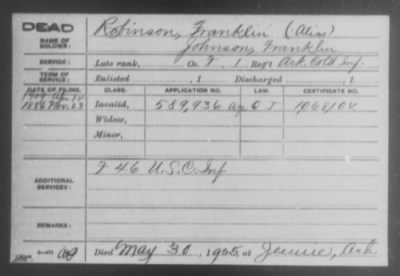 DEAD
NAME OF SOLDIER: Robinson, Franklin (Alias)
Johnson, Franklin
SERVICE: Late rank, Co. F, 1 Reg't Ark. Cold Inf.
TERM OF SERVICE: Enlisted , 1 Discharged , 1
DATE OF FILING. CLASS. APPLICATION NO. LAW. CERTIFICATE NO.
Invalid, 589,936
Widow,
Minor,
ADDITIONAL SERVICES: F 46 U.S.C. Inf
REMARKS:
Died May 30, 1925, at Jennie, Ark